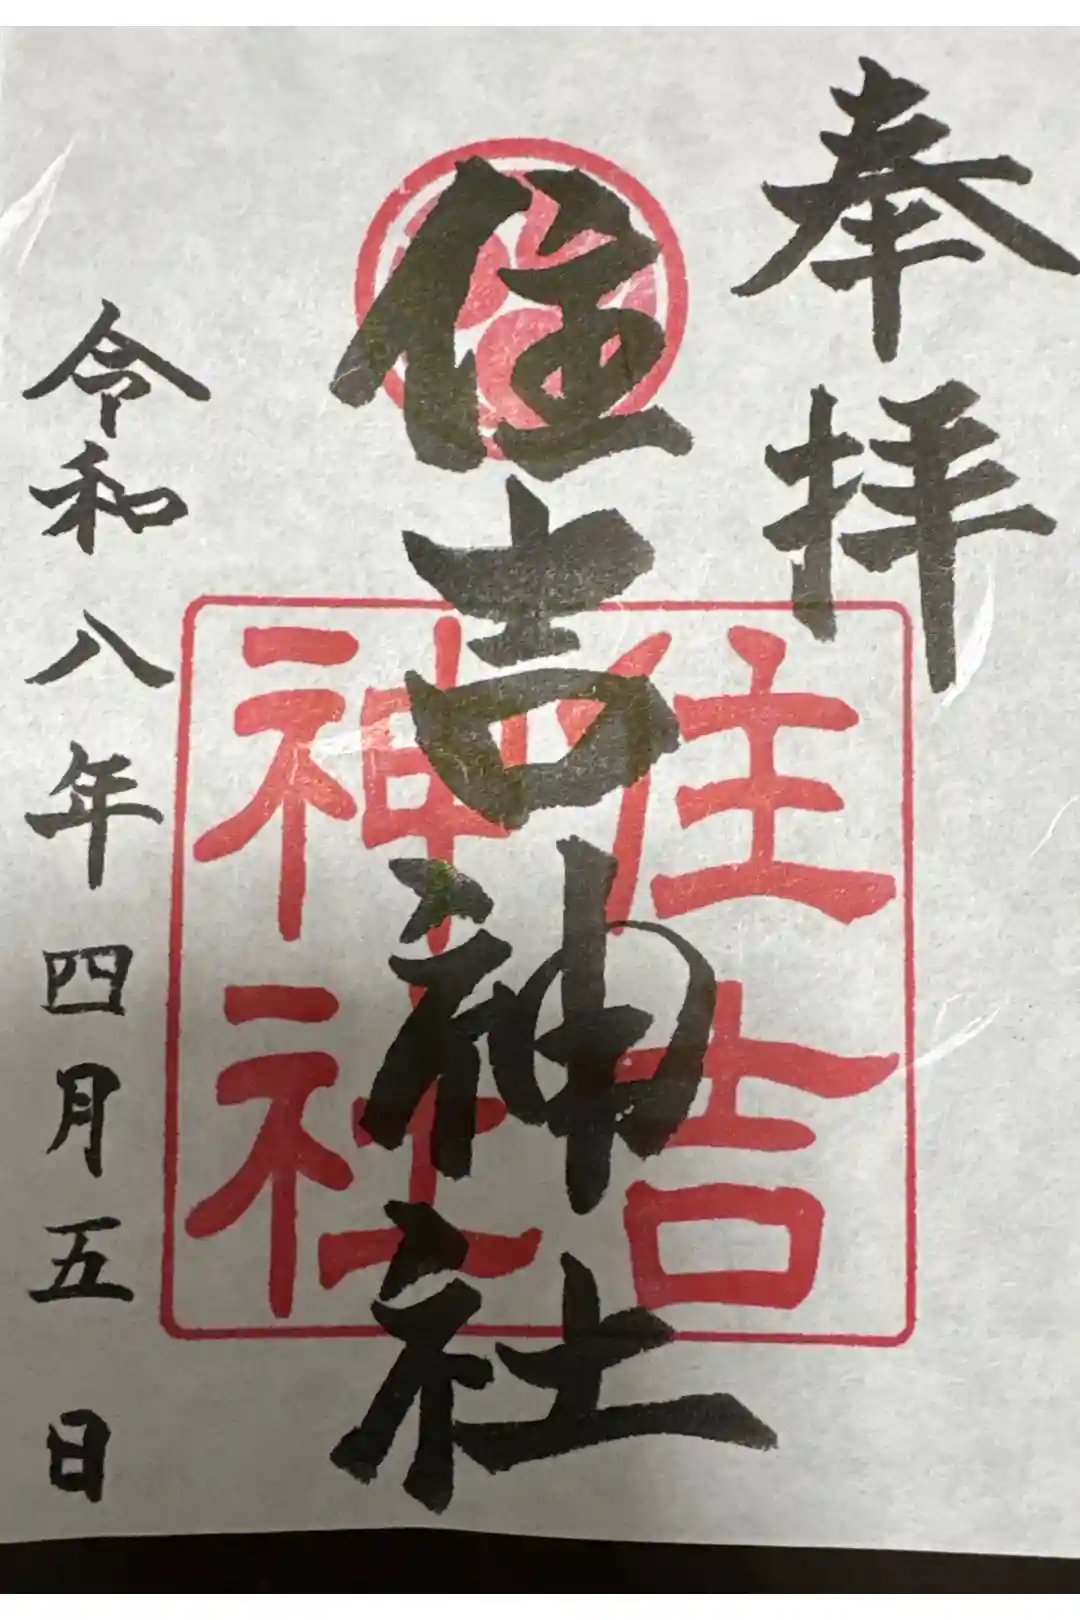 奉拝
住吉神社
住吉
神社
令和八年四月五日